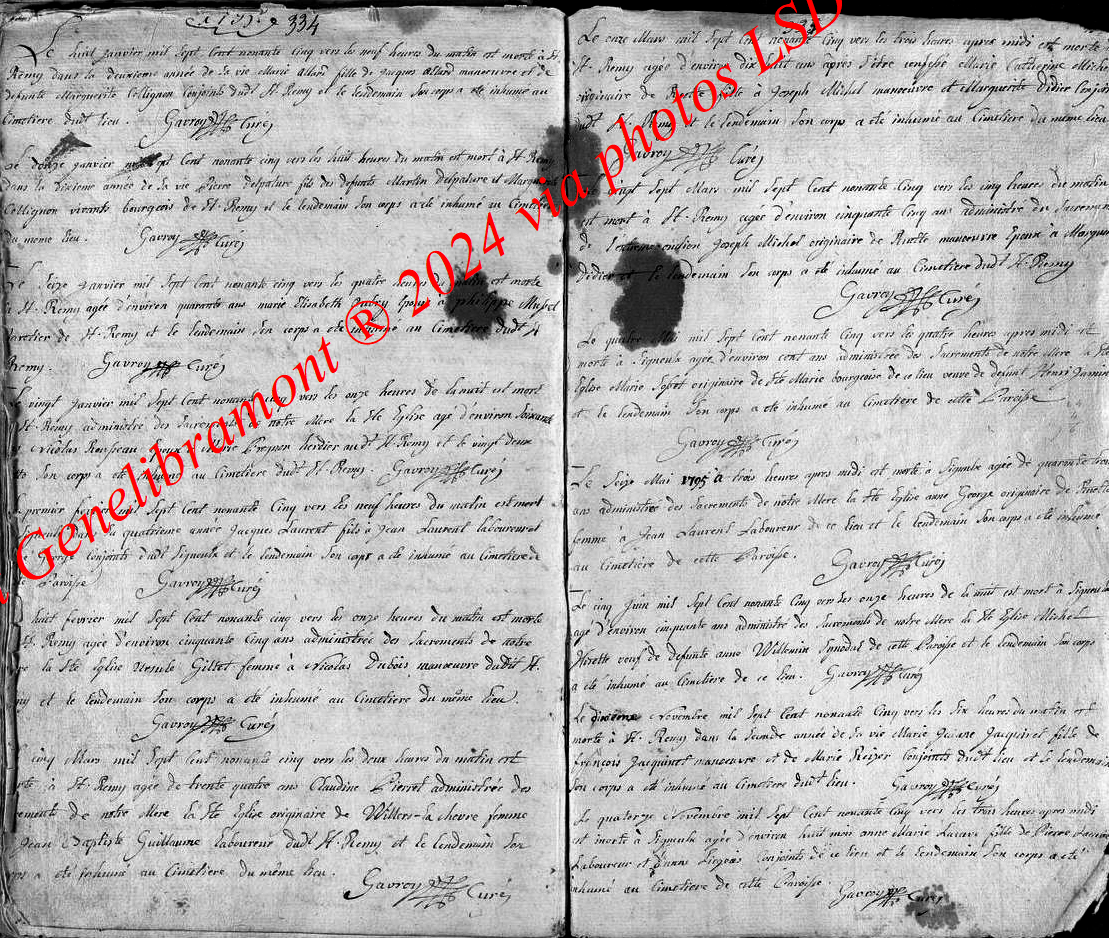 334
Le huit janvier mil Sept Cent nonante cinq vers les neuf heures du matin est morte à St
Remy dans la deuxieme année de Sa vie Marie Allard fille de Jacques Allard manoeuvre et de
defunte Marguerite Collignon Conjoints dudt St Remy et le lendemain Son corps a eté inhumé au
Cimetiere dudt lieu. Gavroy Curé
janvier mil Sept Cent nonante cinq vers les huit heures du matin est mort à St Remy
dans la dixieme année de Sa vie Pierre Delpature fils des defunts Martin Delpature et
Collignon vivants bourgeois de St Remy et le lendemain Son corps a eté inhumé au Cimetiere
du meme lieu. Gavroy Curé
Le Seize Janvier mil Sept Cent nonante cinq vers les quatre heures du matin est morte
à St Remy agée d'environ quarante ans marie Elisabeth Epouse à philippe
de St Remy et le lendemain Son corps a eté inhumé au Cimetiere dudt St
Remy. Gavroy Curé
vingt Janvier mil Sept Cent nonante cinq vers les onze heures de la nuit est mort
St Remy administré des Sacrements de notre Mere la Ste Eglise agé d'environ Soixante
Nicolas Rousseau Epoux à Marie herdier audt St Remy et le vingt deux
Son corps a eté inhumé au Cimetiere dudt St Remy. Gavroy Curé
premier fevrier mil Sept Cent nonante Cinq vers les neuf heures du matin est mort
dans la quatrieme année Jacques Laurent fils à Jean Laurent laboureur et
George Conjoints dudt Signeulx et le lendemain Son corps a eté inhumé au Cimetiere de
Paroisse Gavroy Curé
huit fevrier mil Sept Cent nonante cinq vers les onze heures du matin est morte
St Remy agée d'environ cinquante Cinq ans administrée des Sacrements de notre
la Ste Eglise Ursule Gillet femme à Nicolas Dubois manoeuvre dudit St
et le lendemain Son corps a eté inhumé au Cimetiere du même lieu.
Gavroy Curé
cinq Mars mil Sept Cent nonante cinq vers les deux heures du matin est
à St Remy agée de trente quatre ans Claudine Pierret administrée des
de notre Mere la Ste Eglise originaire de Villers-la-cheure femme
Jean Baptiste Guillaume laboureur dudt St Remy et le lendemain Son
a eté inhumé au Cimetiere du même lieu.
Gavroy Curé
Le onze Mars mil Sept Cent nonante Cinq vers les trois heures apres midi est morte
St Remy agée d'environ dix huit ans apres s'être confessé Marie Catherine Michel
originaire de Ruette fille à Joseph Michel manoeuvre et Marguerite Didier Conjoints
dudt St Remy et le lendemain Son corps a eté inhumé au Cimetiere du même lieu
Gavroy Curé
vingt Sept Mars mil Sept Cent nonante Cinq vers les cinq heures du matin
est mort à St Remy agée d'environ cinquante Cinq ans administré du Sacrement
de l'extreme-onction Joseph Michel originaire de Ruette manoeuvre Epoux à
Didier et le lendemain Son corps a eté inhumé au Cimetiere dudt St Remy
Gavroy Curé
Le quatre Mai mil Sept Cent nonante Cinq vers les quatre heures apres midi est
morte à Signeulx agée d'environ cent ans administrée des Sacrements de notre Mere la Ste
Eglise Marie originaire de Ste Marie bourgeoise de ce lieu veuve de defunt Henri Jamin
et le lendemain Son corps a eté inhumé au Cimetiere de cette Paroisse
Gavroy Curé
Le Seize Mai 1795 à trois heures apres midi est morte à Signeulx agée de quarante trois
ans administrée des Sacrements de notre Mere la Ste Eglise anne George originaire de Ruette
femme à Jean Laurent Laboureur de ce lieu et le lendemain Son corps a eté inhumé
au Cimetiere de cette Paroisse. Gavroy Curé
Le cinq Juin mil Sept Cent nonante Cinq vers les onze heures de la nuit est mort à Signeulx
agé d'environ cinquante ans administré des Sacrements de notre Mere la Ste Eglise Michel
veuf de defunte anne Willemin de cette Paroisse et le lendemain Son corps
a eté inhumé au Cimetiere de ce lieu. Gavroy Curé
Le Novembre mil Sept Cent nonante Cinq vers les Six heures du matin est
morte à St Remy dans la Seconde année de Sa vie Marie Jacquinet fille de
François Jacquinet manoeuvre et de Marie Conjoints dudt lieu et le lendemain
Son corps a eté inhumé au Cimetiere dudt lieu. Gavroy Curé
Le quatorze Novembre mil Sept Cent nonante Cinq vers les trois heures apres midi
est morte à Signeulx agée d'environ huit mois anne Marie fille de Pierre
Laboureur et d'anne Liegeois Conjoints de ce lieu et le lendemain Son corps a eté
inhumé au Cimetiere de cette Paroisse. Gavroy Curé
Genelibramont ® 2024 via photos LSD